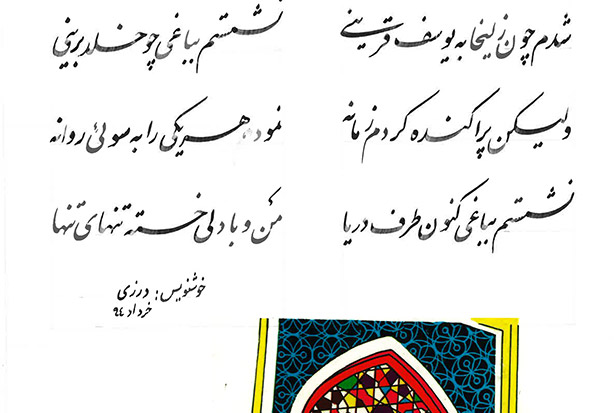 شدم چون زلیخا به یوسف قرینے نشستم بباغی چو خلد برینی
ولیکن پراکنده کردم زمانه نموده هریکی را به سوئی روانه
نشستم بباغی کنون طرف دریا من و با دلی خسته تنهای تنها
خوشنویس: درزی
خرداد ۹٤